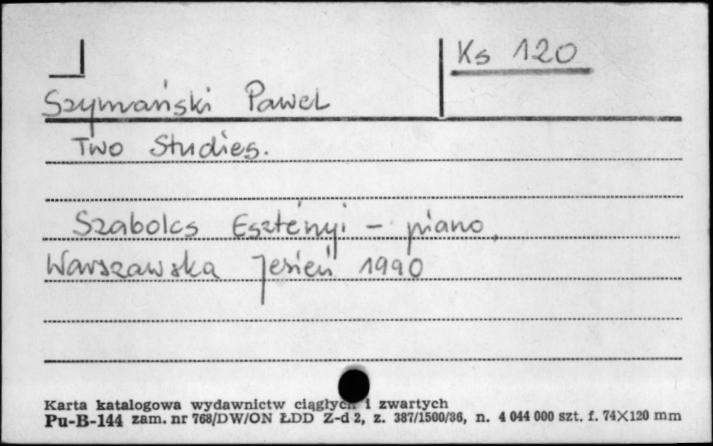 Ks 120
Szymański Paweł
Two Studies.
Szabolcs Esztényi – piano,
Warszawska Jesień 1990
Karta katalogowa wydawnictw ciągłych i zwartych
Pu-B-144 zam. nr 768/DW/ON ŁDD Z-d 2, z. 387/1500/86, n. 4 044 000 szt. f. 74×120 mm